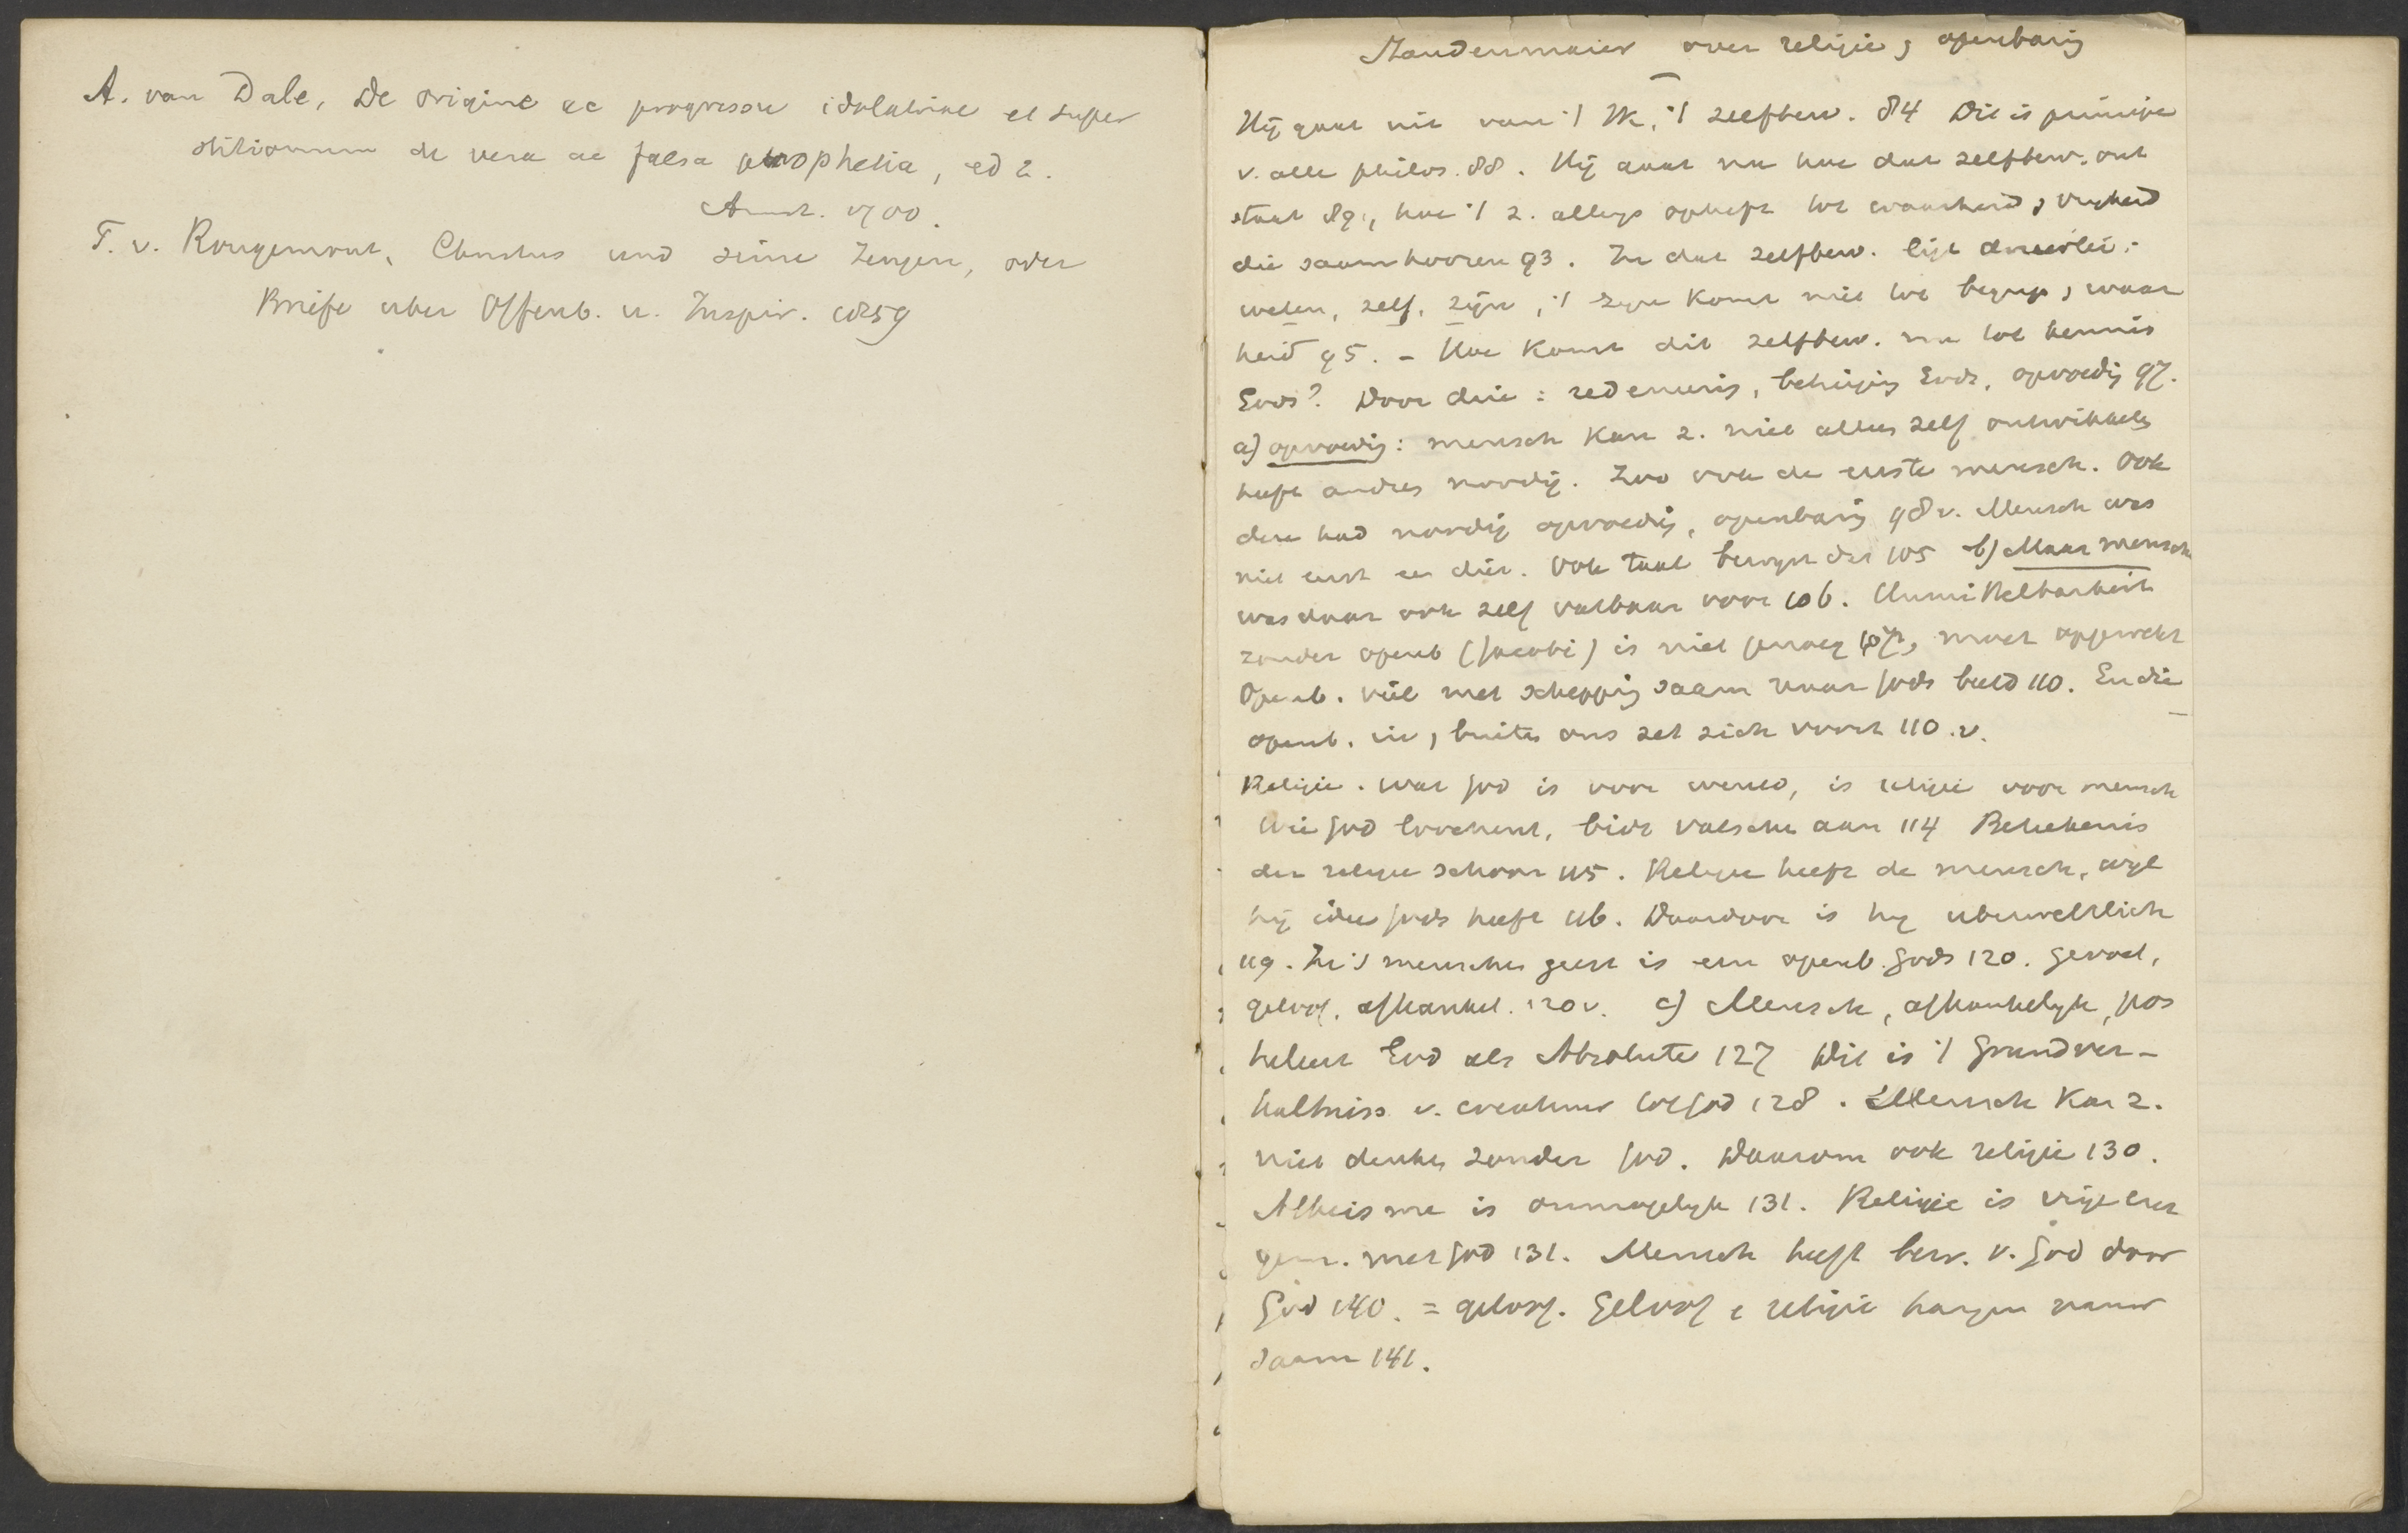 A. van Dale, De origine ac progressu idolatriae et super
stitionum de vera ac falsa prophetia, ed 2.
Amst. 1700.
F. v. Rougemont, Christus und seine Zeugen, oder
Briefe uber Offenb. u. Inspir. 1859
Staudenmaier over religie, openbaring
Hij gaat uit van 't Ik, 't zelfbew. 84 Dit is principe
v. alle philos. 88. Hij gaat na hoe dat zelfbew. ont
staat 89, hoe 't z. allengs opheft tot waarheid, vrijheid
die saamhooren 93. In dat zelfbew. ligt drieerlei:
weten, zelf, zijn, 't zijn komt niet tot begrip, waar
heid 95. - Hoe komt dit zelfbew. nu tot kennis
Gods? Door drie: redeneering, opvoeding 97.
a) opvoeding: mensch kan z. niet alles zelf ontwikkelen
heeft andres noodig. Zoo ook de eerste mensch. Ook
deze had noodig opvoeding, openbaring 98v. Mensch was
niet eerst een dier. Ook taal bewijst dat 105 b) Maar mensch
was daar ook zelf vatbaar voor 106. Unmittelbarkeit
zonder openb (Jacobi) is niet genoeg 107, moet opgewekt
Openb. viel met schepping saam naar Gods beeld 110. En die
openb. in, buiten ons zet zich voort 110.v.
Religie. Wat God is voor wereld, is religie voor mensch
Wie God loochent, bidt valsche aan 114 Beteekenis
der religie schoon 115. Religie heeft de mensch, wijl
hij idee Gods heeft 116. Daardoor is hij uberweltlich
119. In 's menschen geest is een openb. Gods 120. Gevoel,
geloof, afhankel. 120v. c) Mensch, afhankelijk, pos
tuleert God als Absolute 127 Dit is 't Grundver-
haltniss v. creatuur tot God 128. Mensch kan z.
niet denken zonder God. Daarom ook religie 130.
Atheisme is onmogelijk 131. Religie is
gem. met God 131. Mensch heeft bew. v. God door
God 140. = geloof. Geloof e religie hangen nauw
saam 141.